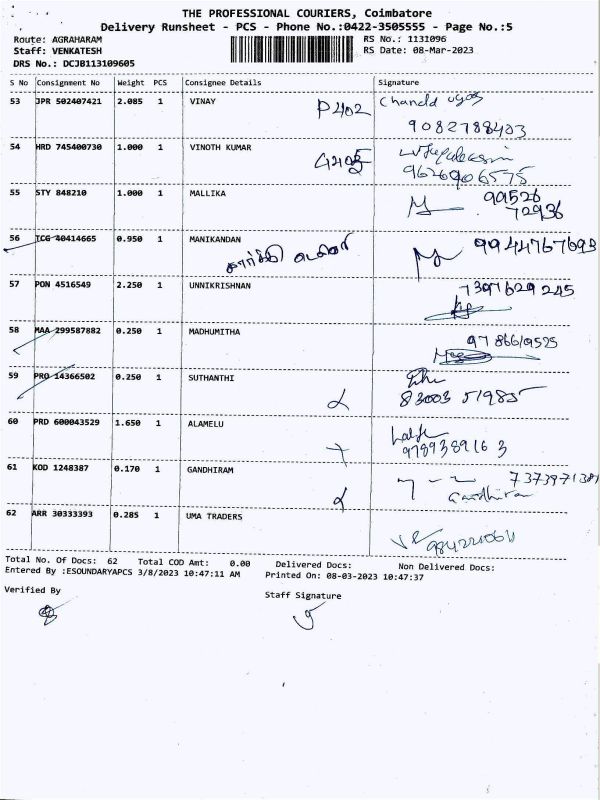 THE PROFESSIONAL COURIERS, Coimbatore
Delivery Runsheet - PCS - Phone No.:0422-3505555 - Page No.:5
Route: AGRAHARAM
RS No.: 1131096
Staff: VENKATESH
RS Date: 08-Mar-2023
DRS No.: DCJB113109605
S No Consignment No Weight PCS Consignee Details Signature
53 JPR 502407421 2.085 1 VINAY P402
9082788403
54 HRD 745400730 1.000 1 VINOTH KUMAR
9626906575
55 STY 848210 1.000 1 MALLIKA 99526
72936
56 TCG 40414665 0.950 1 MANIKANDAN 9944767693
57 PON 4516549 2.250 1 UNNIKRISHNAN 7397629245
58 MAA 299587882 0.250 1 MADHUMITHA 9786619525
59 PRO 14366502 0.250 1 SUTHANTHI
83003 51985
60 PRD 600043529 1.650 1 ALAMELU
9789389163
61 KOD 1248387 0.170 1 GANDHIRAM 7373971381
Gandhiram
62 ARR 30333393 0.285 1 UMA TRADERS
Total No. Of Docs: 62 Total COD Amt: 0.00 Delivered Docs: Non Delivered Docs:
Entered By :ESOUNDARYAPCS 3/8/2023 10:47:11 AM Printed On: 08-03-2023 10:47:37
Verified By
Staff Signature